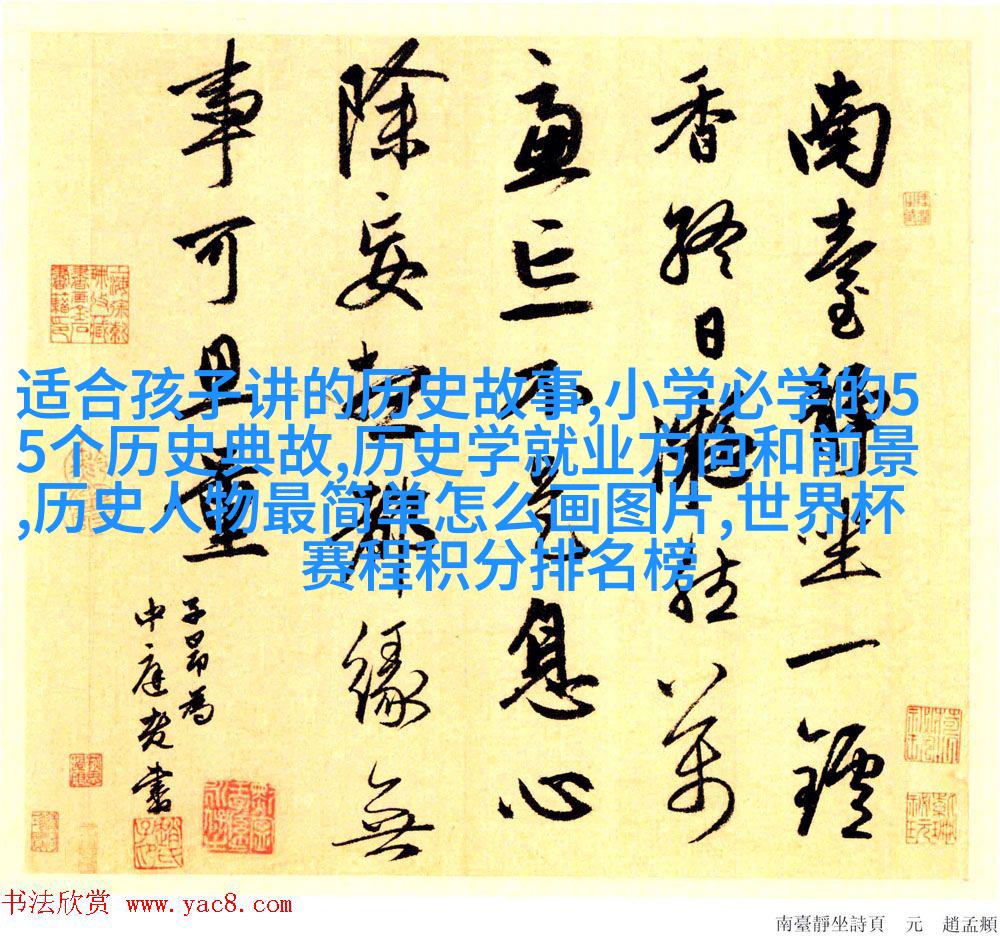 南臺靜坐一鑪
香終日凝然萬
慮亡不是息心
除妄想都緣無
事可思量
子昂為
中庭老書
适合孩子讲的历史故事,小学必学的5
5个历史典故,历史学就业方向和前景
,历史人物最简单怎么画图片,世界杯
赛程积分排名榜
书法欣赏 www.yac8.com
南臺靜坐詩頁 元 趙孟頫